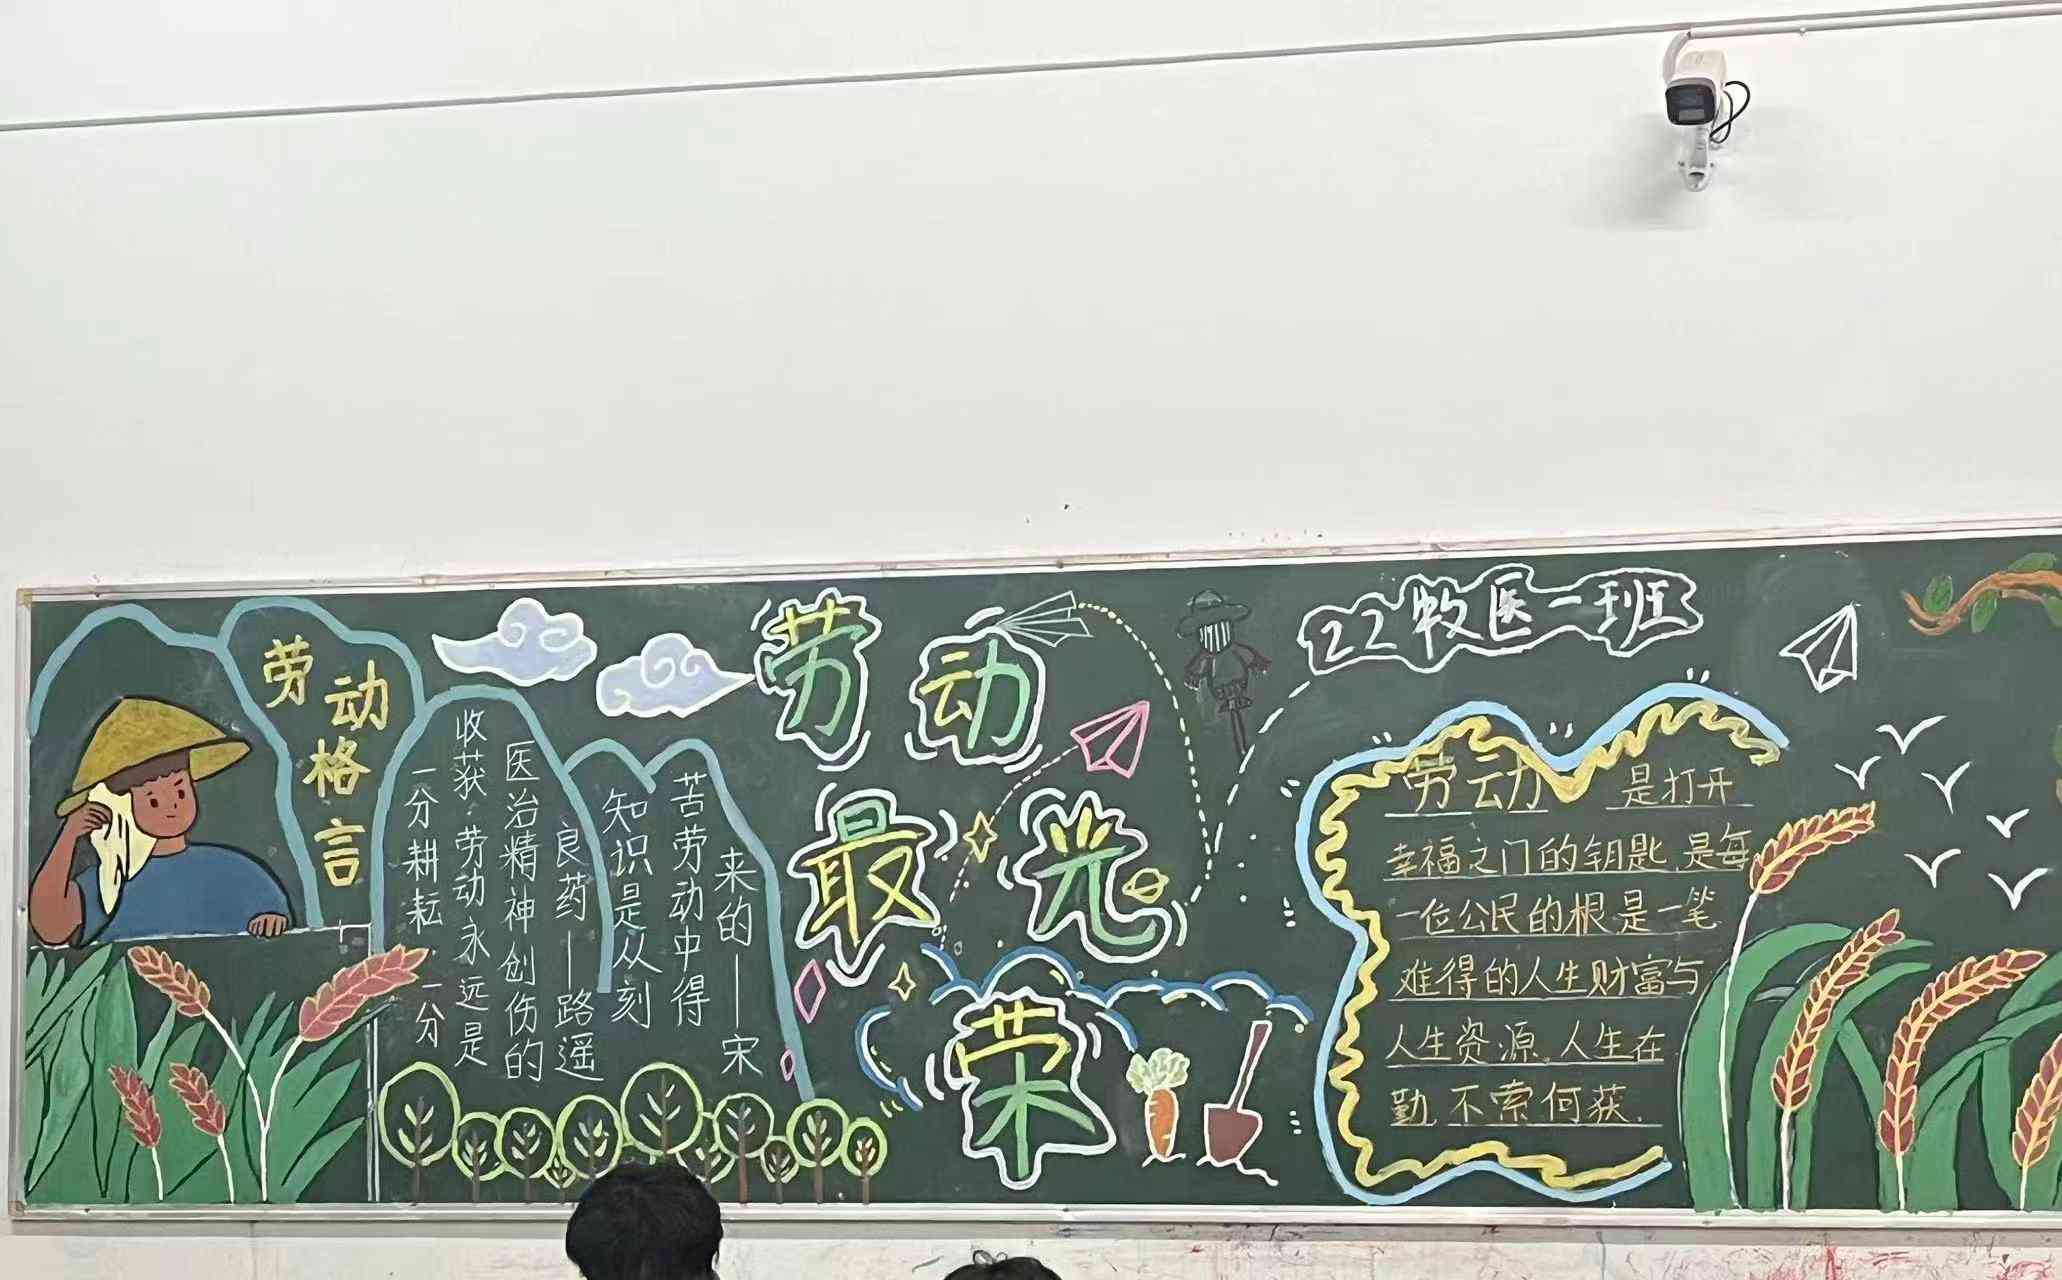 劳动
格
言
一分耕耘.一分
收获.劳动永远是
医治精神创伤的
良药——路遥
知识是从刻
苦劳动中得
来的——宋
劳动
最光
荣
22牧医一班
劳动 是打开
幸福之门的钥匙.是每
一位公民的根是一笔
难得的人生财富与
人生资源.人生在
勤.不索何获.